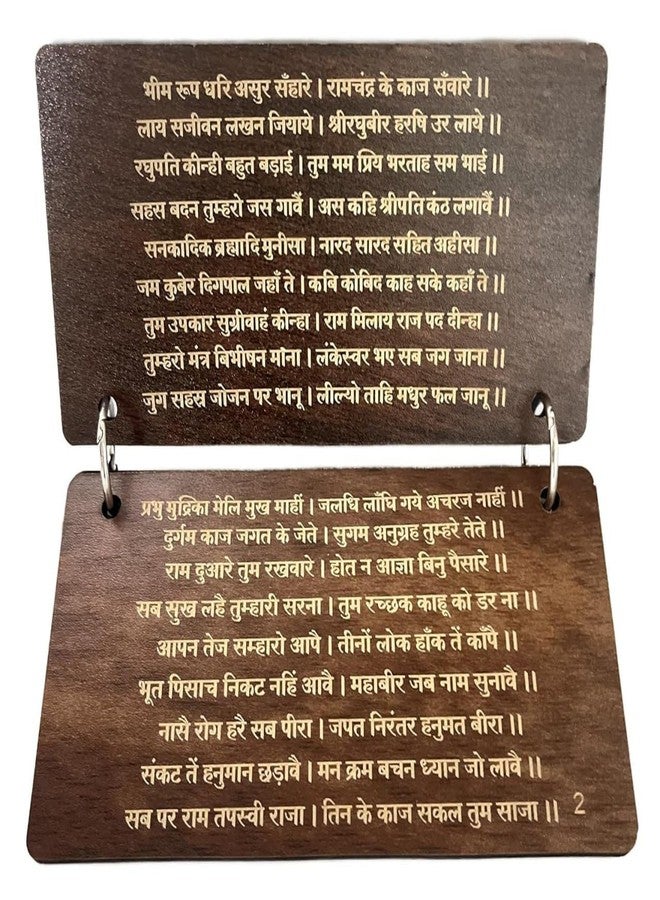 भीम रूप धरि असुर सँहारे | रामचंद्र के काज सँवारे ||
लाय सजीवन लखन जियाये | श्रीरघुबीर हरषि उर लाये ||
रघुपति कीन्ही बहुत बड़ाई | तुम मम प्रिय भरताह सम भाई ||
सहस बदन तुम्हरो जस गावैं | अस कहि श्रीपति कंठ लगावैं ||
सनकादिक ब्रह्मादि मुनीसा | नारद सारद सहित अहीसा ||
जम कुबेर दिगपाल जहाँ ते | कबि कोबिद काह सके कहाँ ते ||
तुम उपकार सुग्रीवाहं कीन्हा | राम मिलाय राज पद दीन्हा ||
तुम्हरो मंत्र बिभीषन मांना | लंकेस्वर भए सब जग जाना ||
जुग सहस्र जोजन पर भानू | लील्यो ताहि मधुर फल जानू ||
प्रभु मुद्रिका मेलि मुख माहीं | जलधि लाँघि गये अचरज नाहीं ||
दुर्गम काज जगत के जेते | सुगम अनुग्रह तुम्हरे तेते ||
राम दुआरे तुम रखवारे | होत न आज्ञा बिनु पैसारे ||
सब सुख लहै तुम्हारी सरना | तुम रच्छक काहू को डर ना ||
आपन तेज सम्हारो आपै | तीनों लोक हाँक तें काँपै ||
भूत पिसाच निकट नहिं आवै | महाबीर जब नाम सुनावै ||
नासै रोग हरै सब पीरा | जपत निरंतर हनुमत बीरा ||
संकट तें हनुमान छड़ावै | मन क्रम बचन ध्यान जो लावै ||
सब पर राम तपस्वी राजा | तिन के काज सकल तुम साजा || 2